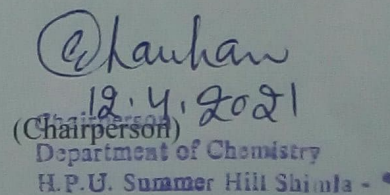 Chauhan
12.4.2021
Chairperson
(Chairperson)
Department of Chemistry
H.P.U. Summer Hill Shimla -